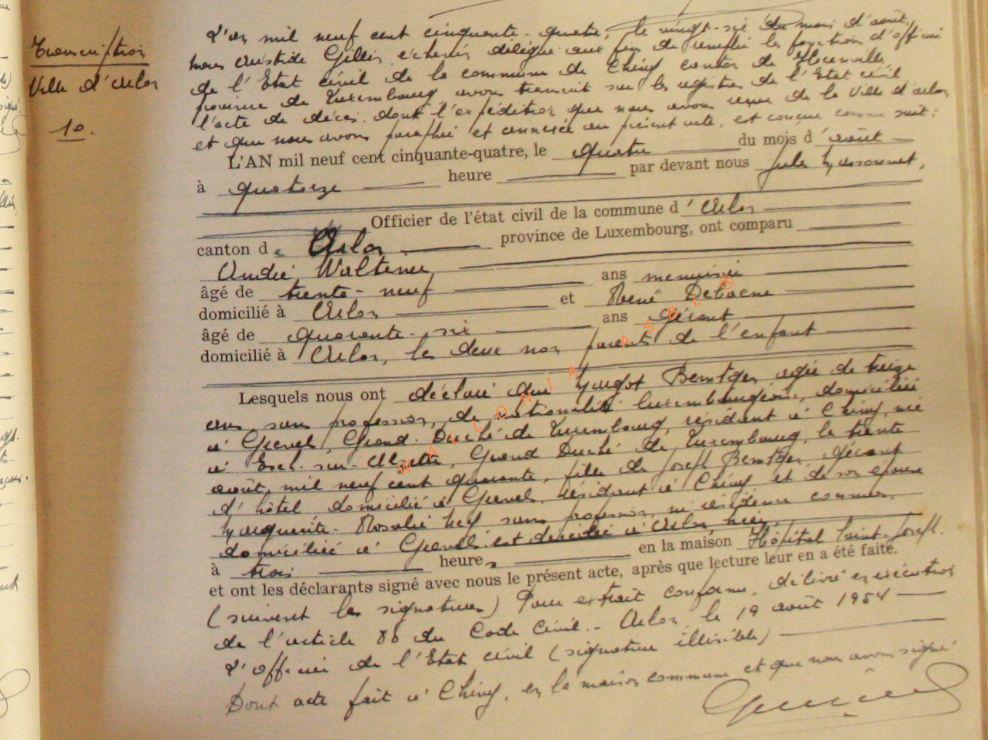 Transcription
Ville d'Arlon
10.
L'an mil neuf cent cinquante-quatre, le vingt-six du mois d'août,
nous Aristide Gillis, échevin délégué aux fin de remplir les fonctions d'officier
de l'Etat civil de la commune de Chiny canton de Florenville,
province de Luxembourg avons transcrit sur les registres de l'Etat civil
l'acte de décès, dont l'expédition que nous avons reçue de la Ville d'Arlon
et que nous avons paraphée et annexée au présent acte, est conçue comme suit:
L'AN mil neuf cent cinquante-quatre, le quatre du mois d'août
à quatorze heure par devant nous Jules
Officier de l'état civil de la commune d'Arlon
canton d. Arlon province de Luxembourg, ont comparu
André Waltener,
âgé de trente-neuf ans menuisier
domicilié à Arlon et René Debacne
âgé de quarante-six ans gérant
domicilié à Arlon, les deux non parents de l'enfant
Lesquels nous ont déclaré que Margot Bemtgen agée de treize
ans sans profession, de nationalité luxembourgeoise, domiciliée
à Grevel, Grand-Duché de Luxembourg, résidant à Chiny, née
à Esch-sur-Alzette, Grand Duché de Luxembourg, le trente
août, mil neuf cent quarante, fille de Joseph Bemtgen, gérant
d'hôtel domicilié à Grevel, résidant à Chiny et de son épouse
Marguerite-Rosalie sans profession, ni résidence connues,
domiciliée à Grevel est décédée à Arlon hier,
à trois heures en la maison Hôpital Saint-Joseph.
et ont les déclarants signé avec nous le présent acte, après que lecture leur en a été faite.
(suivent les signatures) Pour extrait conforme, délivré en exécution
de l'article 80 du Code Civil.- Arlon, le 19 août 1954
L'officier de l'Etat civil (signature illisible)
Dont acte fait à Chiny, en la maison commune et que nous avons signé